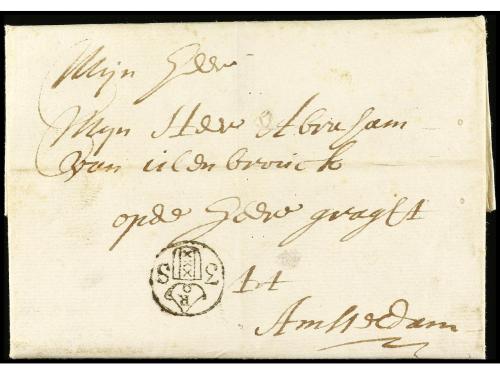 Mijn Heer
Mijn Heer Abraham
van uilenbrouck
opde Heere graght
tot
Amsterdam
3 S
R